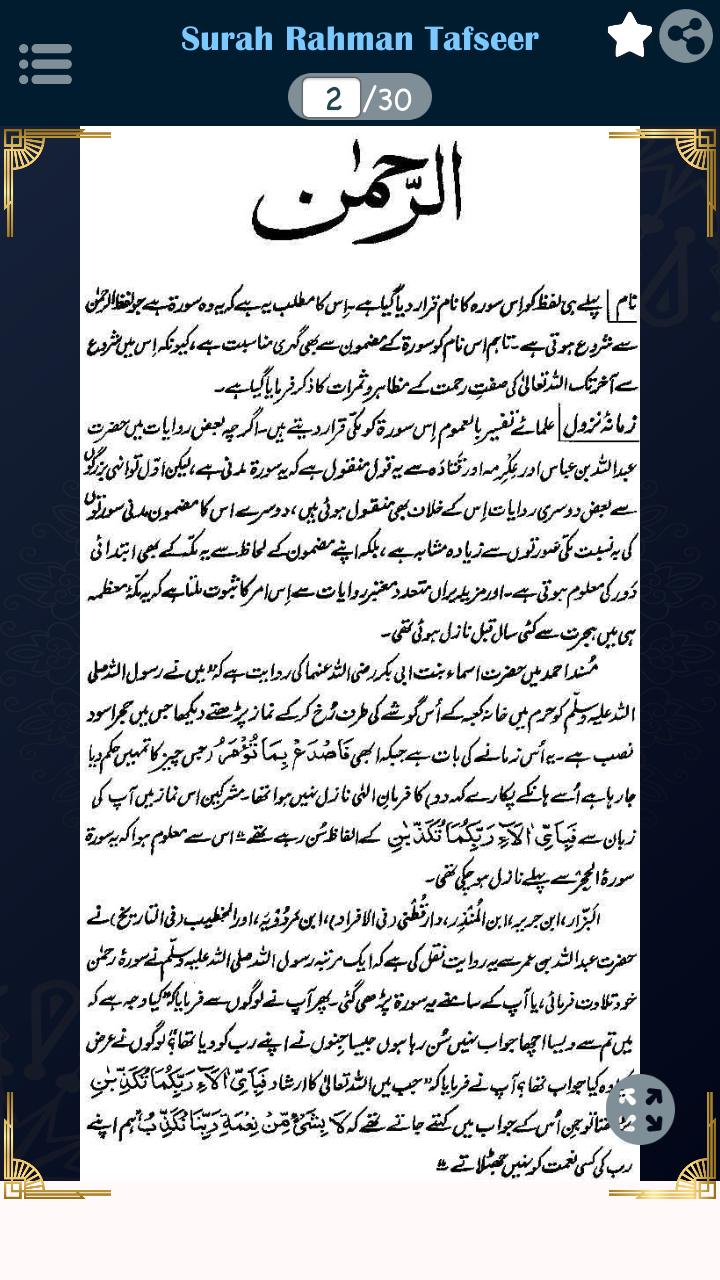 Surah Rahman Tafseer
2/30
الرَّحمٰن
نام | پہلے ہی لفظ کو اِس سورہ کا نام قرار دیا گیا ہے۔ اِس کا مطلب یہ ہے کہ یہ وہ سورۃ ہے جو لفظ الرحمٰن
سے شروع ہوتی ہے۔ تاہم اس نام کو سورۃ کے مضمون سے بھی گہری مناسبت ہے، کیونکہ اِس میں شروع
سے آخر تک اللہ تعالیٰ کی صفتِ رحمت کے مظاہر و ثمرات کا ذکر فرمایا گیا ہے۔
زمانۂ نزول | علمائے تفسیر بالعموم اِس سورۃ کو مکّی قرار دیتے ہیں۔ اگرچہ بعض روایات میں حضرت
عبداللہ بن عباس اور عِکْرِمہ اور قَتَادَہ سے یہ قول منقول ہے کہ یہ سورۃ مدنی ہے، لیکن اوّل تو انہی بزرگوں
سے بعض دوسری روایات اِس کے خلاف بھی منقول ہوئی ہیں، دوسرے اس کا مضمون مدنی سورتوں
کی بہ نسبت مکّی سورتوں سے زیادہ مشابہ ہے، بلکہ اپنے مضمون کے لحاظ سے یہ مکہ کے بھی ابتدائی
دَور کی معلوم ہوتی ہے۔ اور مزید براں متعدد معتبر روایات سے اِس امر کا ثبوت ملتا ہے کہ یہ مکۂ معظمہ
ہی میں ہجرت سے کئی سال قبل نازل ہوئی تھی۔
مُسند احمد میں حضرت اسماء بنت ابی بکر رضی اللہ عنہما کی روایت ہے کہ "میں نے رسول اللہ صلی
اللہ علیہ وسلّم کو حرم میں خانہ کعبہ کے اُس گوشے کی طرف رُخ کر کے نماز پڑھتے دیکھا جس میں حجرِ اسود
نصب ہے۔ یہ اُس زمانے کی بات ہے جبکہ ابھی فَاصْدَعْ بِمَا تُؤْمَرُ (جس چیز کا تمہیں حکم دیا
جا رہا ہے اُسے ہانکے پکارے کہہ دو) کا فرمانِ الٰہی نازل نہیں ہوا تھا۔ مشرکین اس نماز میں آپ کی
زبان سے فَبِاَیِّ اٰلَآءِ رَبِّکُمَا تُکَذِّبٰنِ کے الفاظ سُن رہے تھے"۔ اس سے معلوم ہوا کہ یہ سورۃ
سورۃ الحِجْر سے پہلے نازل ہو چکی تھی۔
البَزّار، ابن جریر، ابن المُنْذِر، دارقُطْنی (فی الافراد)، ابن مَرْدُوْیَہ، اور الخطیب (فی التاریخ) نے
حضرت عبداللہ بن عمر سے یہ روایت نقل کی ہے کہ ایک مرتبہ رسول اللہ صلی اللہ علیہ وسلّم نے سورۂ رحمٰن
خود تلاوت فرمائی، یا آپ کے سامنے یہ سورۃ پڑھی گئی۔ پھر آپ نے لوگوں سے فرمایا کہ "کیا وجہ ہے کہ
میں تم سے ویسا اچھا جواب نہیں سُن رہا ہوں جیسا جِنوں نے اپنے رب کو دیا تھا"؟ لوگوں نے عرض
وہ کیا جواب تھا؟ آپ نے فرمایا کہ "جب میں اللہ تعالیٰ کا ارشاد فَبِاَیِّ اٰلَآءِ رَبِّکُمَا تُکَذِّبٰنِ
تو جِن اُس کے جواب میں کہتے جاتے تھے کہ لَا بِشَیْءٍ مِّنْ نِعْمَۃِ رَبِّنَا نُکَذِّبُ، "ہم اپنے
رب کی کسی نعمت کو نہیں جھٹلاتے"۔